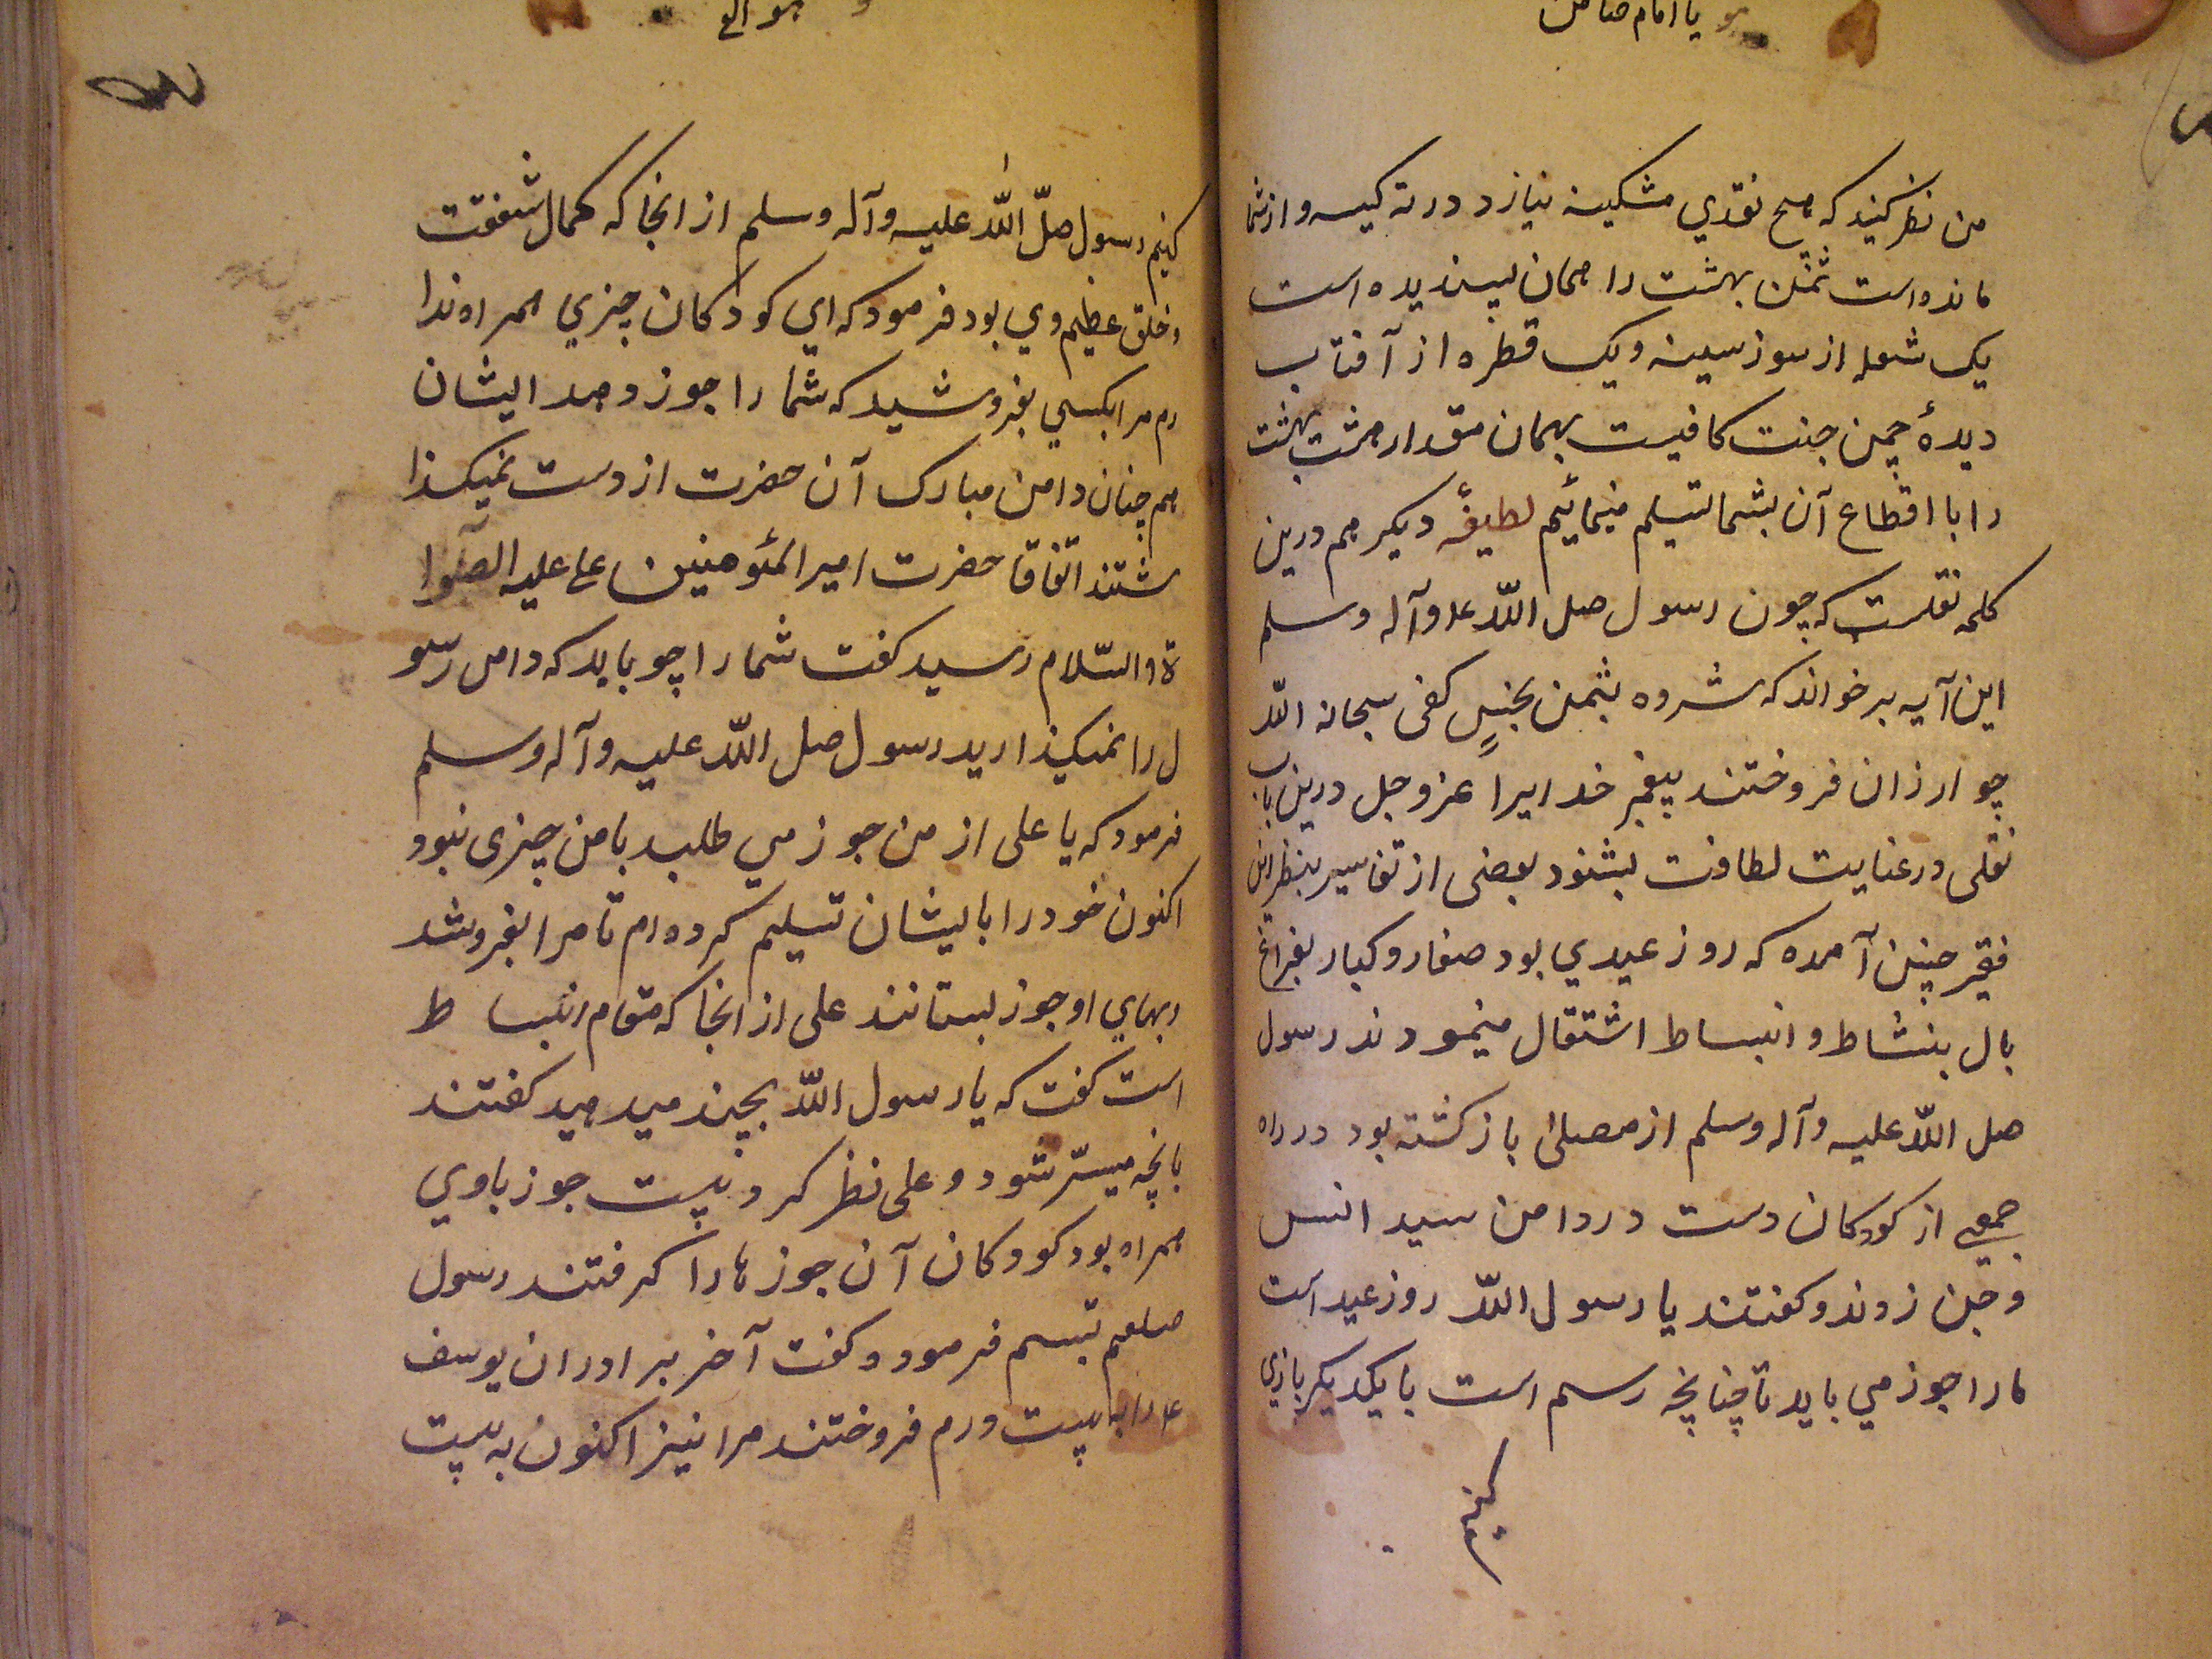 یا امام ضامن
من نظر کنید که هیچ نقدی مشکینه نیازد در ته کیسه و از شما
مانده است ثمن بهشت را همان پسندیده است
یک شعله از سوز سینه و یک قطره از آفتاب
دیدهٔ چمن جنت کافیست بهمان مقدار هشت بهشت
را با اقطاع آن بشما تسلیم مینمائیم لطیفهٔ دیکر هم درین
کلمه نقلست که چون رسول صل اللّه علا وآله وسلم
این آیه برخواند که شروه بثمن بخسٍ کفی سبحانه اللّه
چو ارزان فروختند پیغمبر خدایرا عز وجل درین باب
نقلی در غنایت لطافت بشنود بعضی از تفاسیر بنظر این
فقیر چنین آمده که روز عیدی بود صغار و کبار بفراغ
بال بنشاط و انبساط اشتغال مینمودند رسول
صل اللّه علیه وآله وسلم از مصلی باز کشته بود در راه
جمعی از کودکان دست در دامن سید انس
و جن زدند و کفتند یا رسول اللّه روز عید است
ما را جوز می باید تا چنانچه رسم است با یکدیکر بازی
کنیم
هو الع
کنیم رسول صلّ اللّه علیه وآله وسلم از انجا که کمال شفقت
و خلق عظیم وی بود فرمود که ای کودکان چیزی همراه ندا
رم مرا بکسی بفروشید که شما را جوز دهد ایشان
هم چنان دامن مبارک آن حضرت از دست نمیکذا
شتند اتفاقا حضرت امیر المئومنین علی علیه الصلوا
ة والسّلام رسید کفت شما را چو باید که دامن رسو
ل را نمیکذارید رسول صل اللّه علیه وآله وسلم
فرمود که یا علی از من جوز می طلبد با من چیزی نبود
اکنون خود را بایشان تسلیم کرده ام تا مرا بفروشد
و بهای او جوز بستانند علی از انجا که مقام انبسا ط
است کفت که یا رسول اللّه بچند میدهید کفتند
بانچه میسّر شود و علی نظر کرد بیست جوز باوی
همراه بود کودکان آن جوزها را کرفتند رسول
صلعم تبسم فرمود و کفت آخر برادران یوسف
ع را به بیست درم فروختند مرا نیز اکنون به بیست